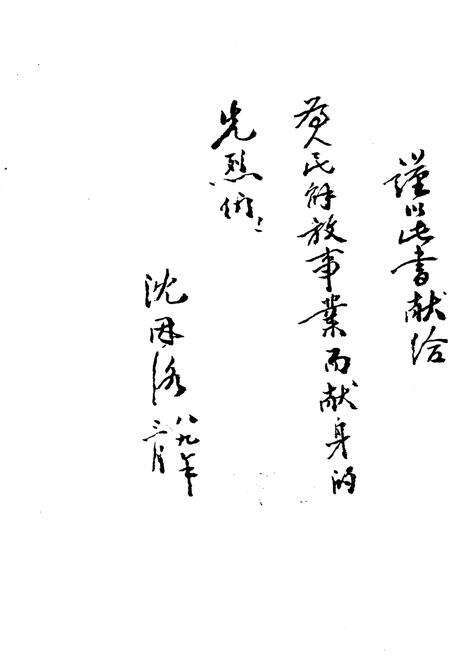 謹以此書献给
为人民解放事業而献身的
先烈们
沈
八九年
三月